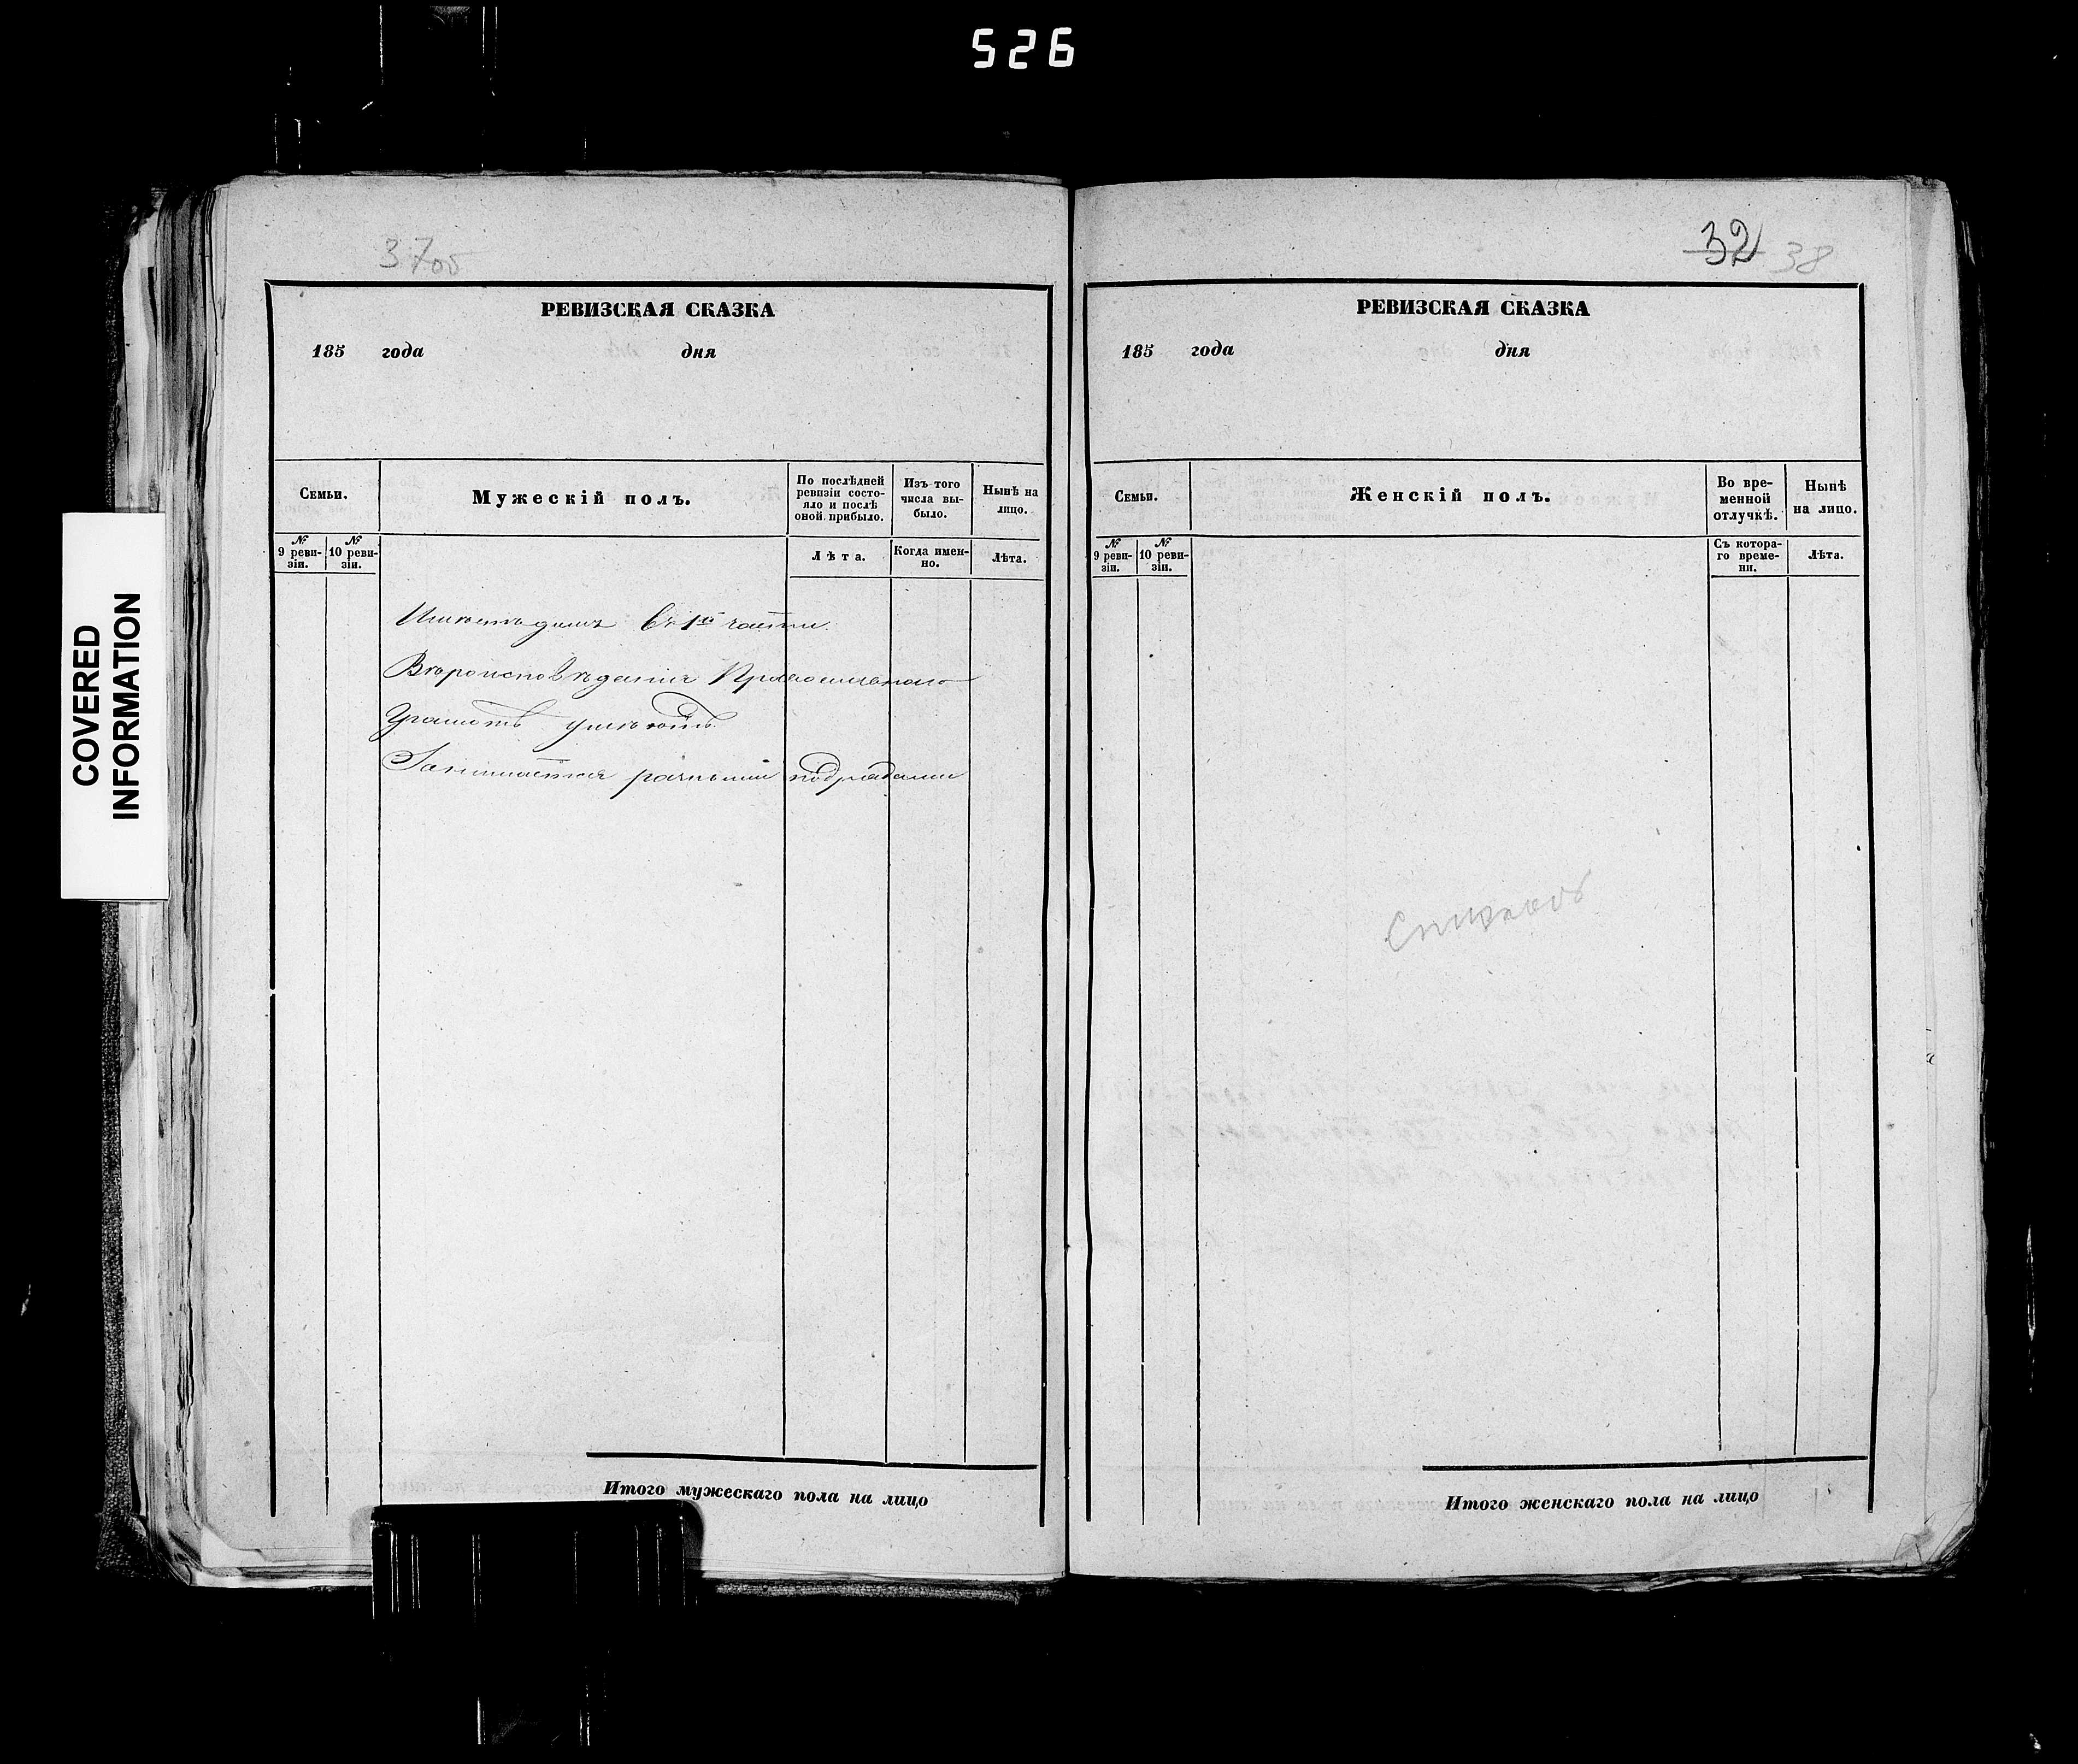 526
37об
РЕВИЗСКАЯ СКАЗКА
185 года дня
Семьи.
Мужескій полъ.
По послѣдней ревизіи состояло и послѣ оной прибыло.
Изъ того числа выбыло.
Нынѣ на лицо.
№ 9 ревизіи.
№ 10 ревизіи.
Лѣта.
Когда именно.
Лѣта.
Имѣетъ домъ въ 1й части
Вѣроисповѣданія Православнаго
Грамотѣ умѣютъ
Занимается разными подрядами
Итого мужескаго пола на лицо
32 38
РЕВИЗСКАЯ СКАЗКА
185 года дня
Семьи.
Женскій полъ.
Во временной отлучкѣ.
Нынѣ на лицо.
№ 9 ревизіи.
№ 10 ревизіи.
Съ котораго времени.
Лѣта.
Итого женскаго пола на лицо
COVERED
INFORMATION